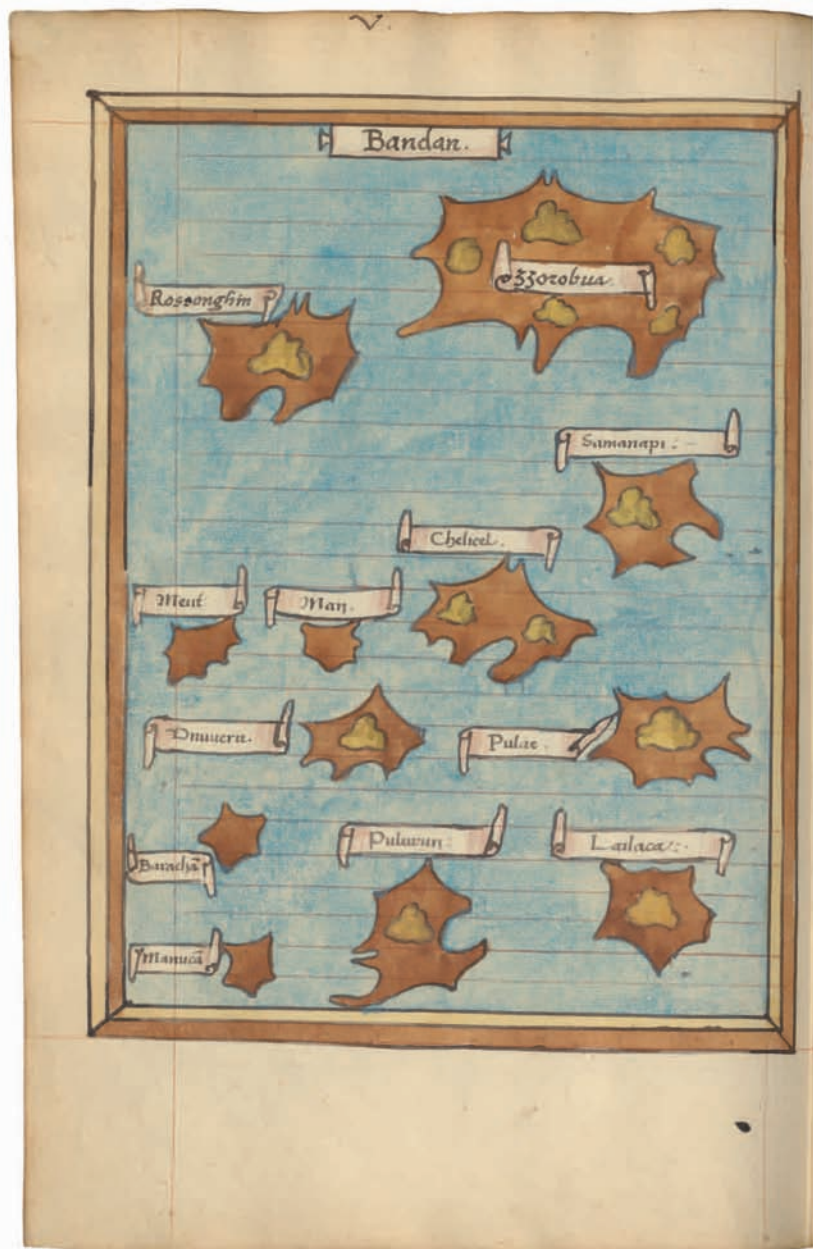 V.
Bandan.
Rossonghin
ZZorobua.
Samanapi :-
Chelicel.
Meut
Man.
Pnuueru.
Pulae.
Baracha᷉
Puluurun :
Lailaca :·
Manuca᷉